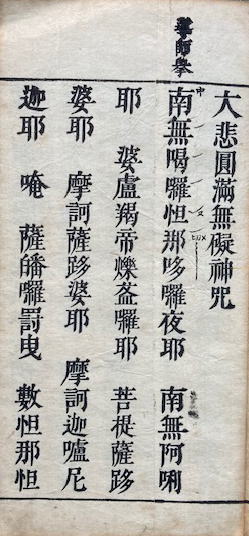 大悲圓滿無礙神咒
南無喝囉怛那哆囉夜耶　南無阿唎
耶　婆盧羯帝爍盋囉耶　菩提薩跢
婆耶　摩訶薩跢婆耶　摩訶迦嚧尼
迦耶　唵　薩皤囉罰曳　數怛那怛